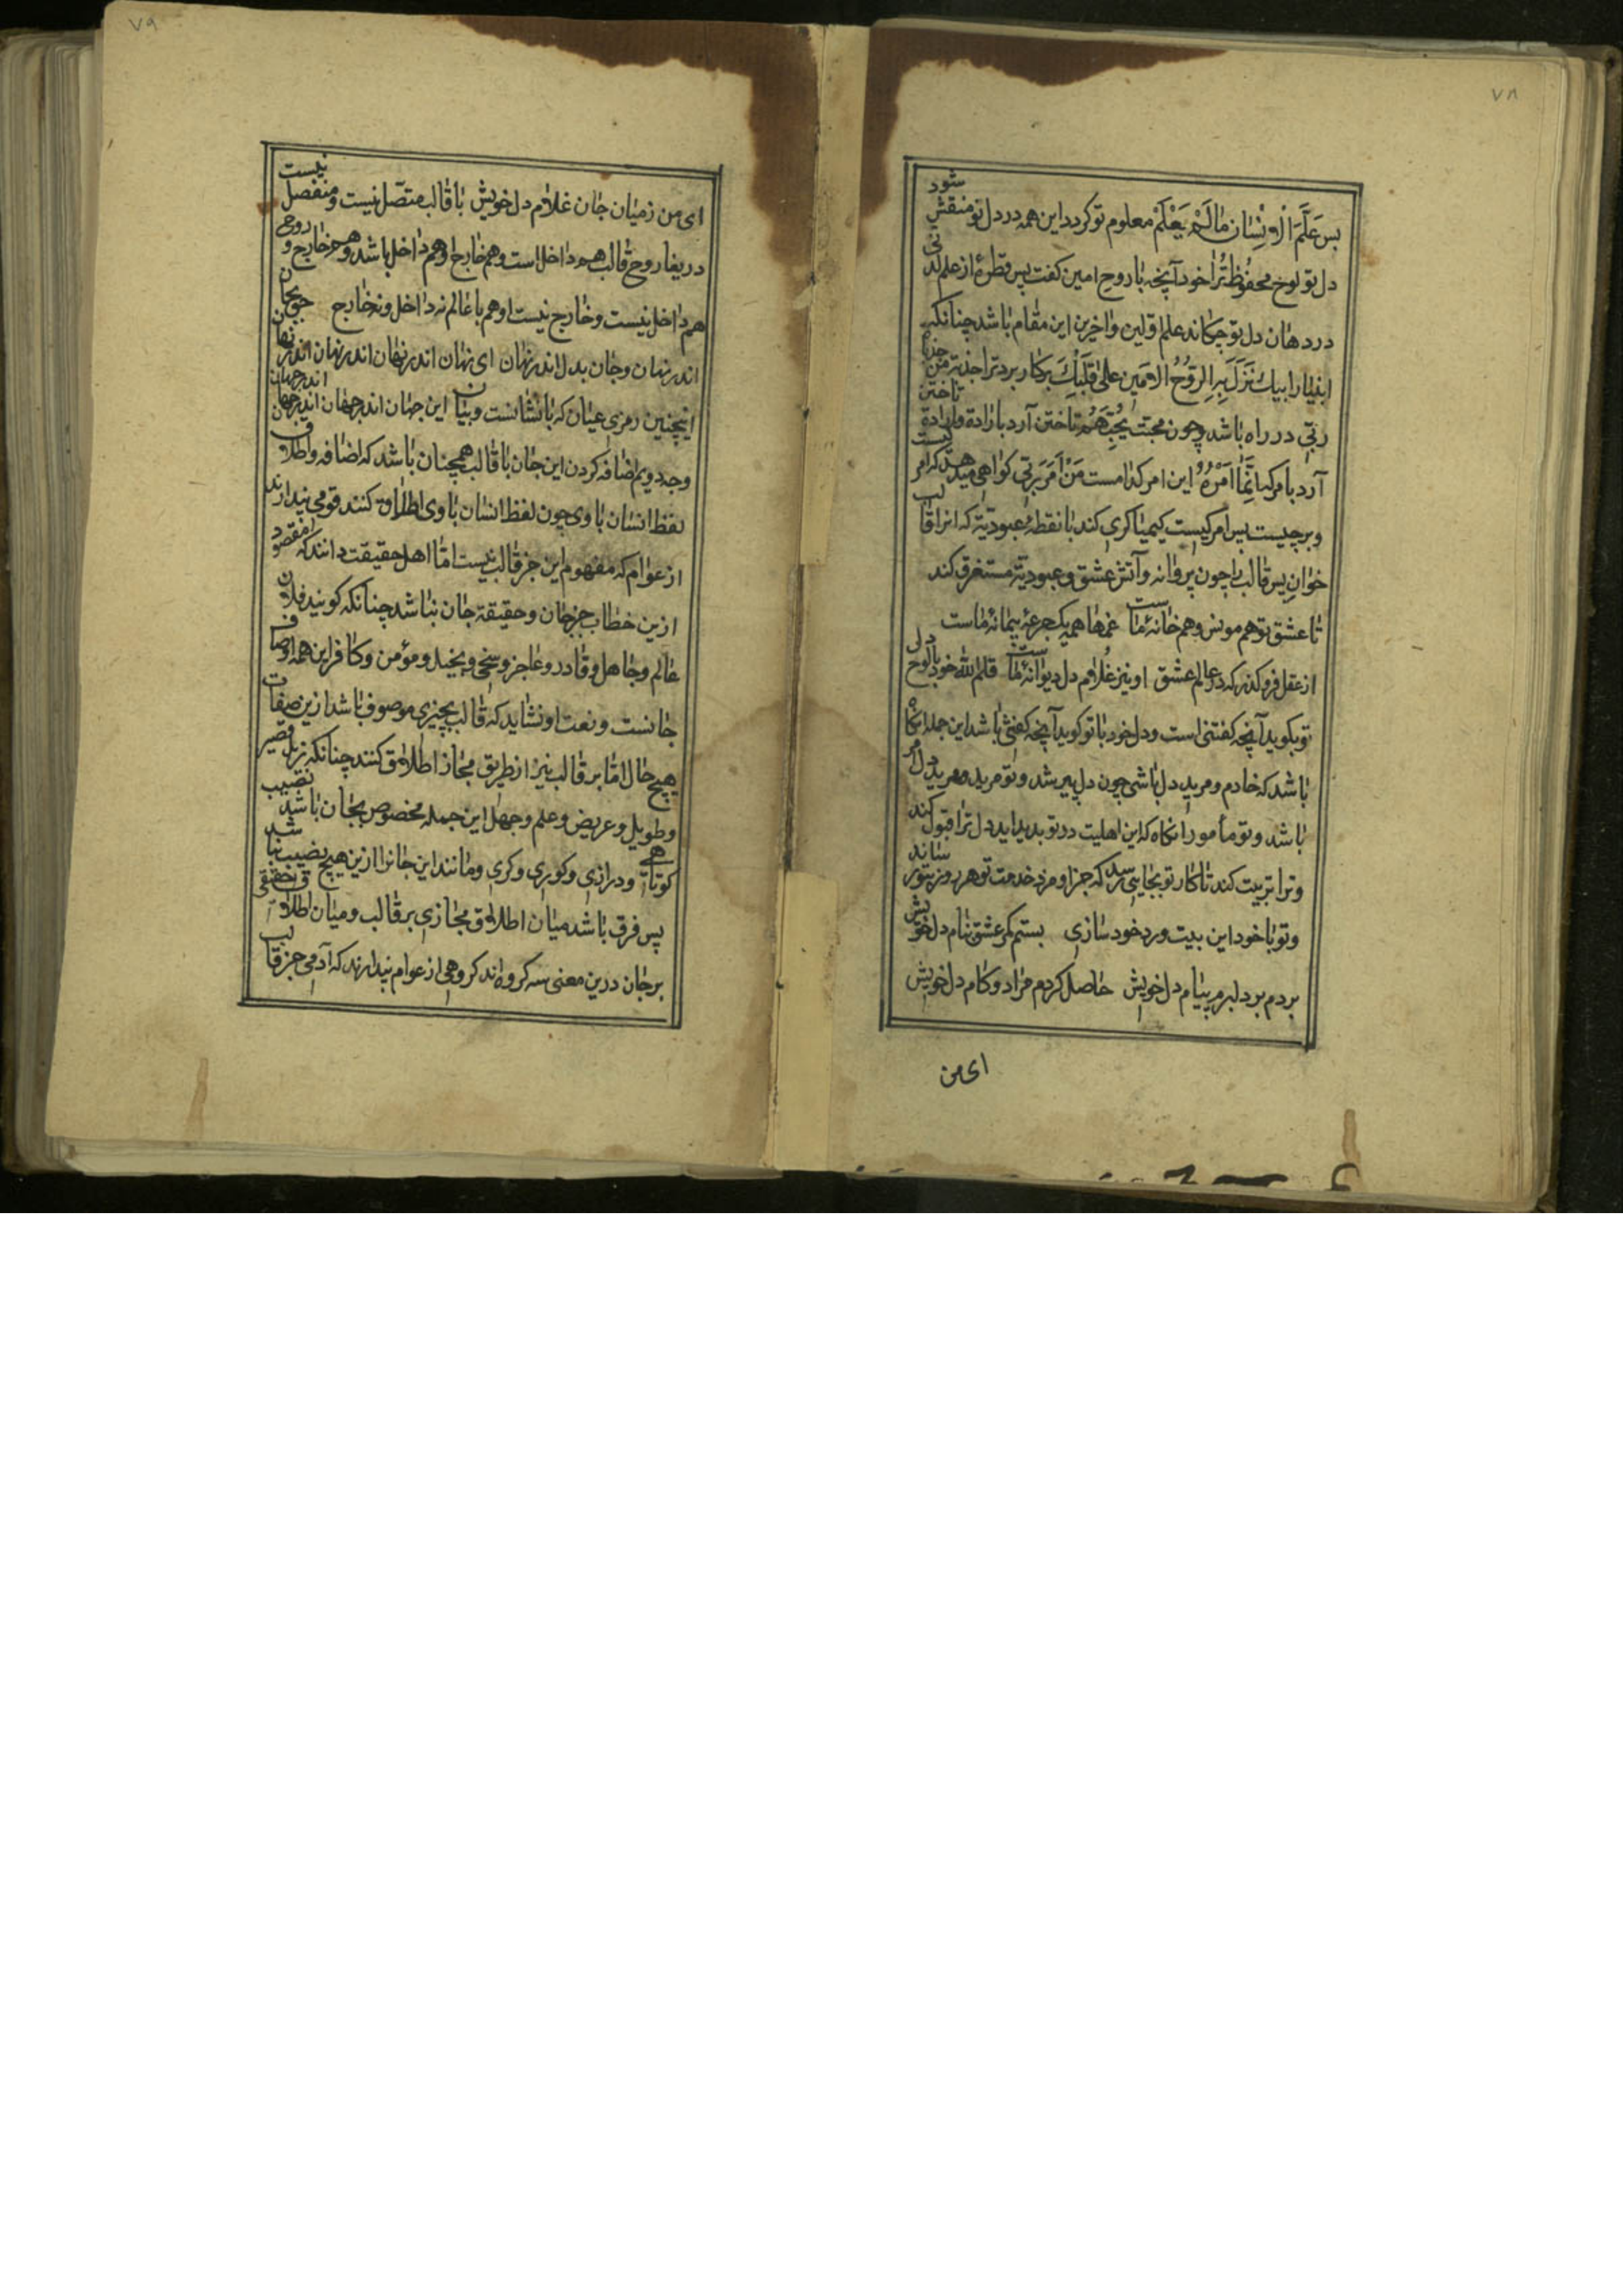 ٧٨
بس عَلَّمَ الْاِنْسَانَ مَالَمْ يَعْلَمْ معلوم تو کردد این همه در دل تو منقش شود
دل تو لوح محفوظ تُرا خود آنچه با روح امین کفت پس قطرهٔ از علم لدنی
در دهان دل تو چکاند علم اولین واخرین این مقام باشد چنانکه
انبیارا بیک نَزَلَ بِهِ الرُّوحُ الْاَمین عَلیٰ قَلْبِكَ بر کار بر تراجذبة من جذبا
ربّی در راه باشد وچون محبّت یُحِبّهُم تاختن آرد با رادة و ارادة تاختن
آرد بامرکه انّما اَمْرُهُ این امر کدامست مَنْ اَمَرَ ربّی کواهی میدهد که امر کیست
وبر چیست پس امر کیست کیمیا کری کند با نقطهٔ عبودیّة که انرا قالب
خوان پس قالب را چون پروانه وآتش عشق و عبودیّة مستغرق کند
تا عشق تو هم مونس وهم خانهٔ ماست غمها همه یک جرعهٔ پیمانهٔ ماست
از عقل فرو کذر که در عالم عشق او نیز غلام دل دیوانهٔ ماست قلم الله خود با لوح دل
تو بکوید آنچه کفتنی است ودل خود با تو کوید آنچه کفتنی باشد این جمله انکاه
باشد که خادم ومرید دل باشی چون دل پیر شد و تو مرید ومرید دل امر
باشد و تو مأمور انکاه که این اهلیت در تو بدید اید دل ترا قبول کند
وترا تربیت کند تا کار تو بجایی رسد که جزا و مزد خدمت تو هر روز بتو رساند
وتو با خود این بیت ورد خود سازی بستم کمر عشق بنام دل خویش
بردم بر دلبرم پیام دل خویش حاصل کردم مراد و کام دل خویش
ای من
٧٩
ای من زمیان جان غلام دل خویش با قالب متصل نیست ومنفصل نیست
دریغا روح قالب هم داخل است وهم خارج اوهم داخل باشد وهم خارج و روح
هم داخل نیست وخارج نیست اوهم با عالم نه داخل ونه خارج جوی جان
اندر نهان وجان بدل اندر نهان ای نهان اندر نهان اندر نهان اندر نهان
اینچنین رمزی عیان که با نشانست وبیان این جهان اندر جهان اندر جهان اندر جهان
وجه دویم اضافه کردن این جان با قالب همچنان باشد که اضافه واطلاق
لفظ انسان با وی چون لفظ انسان با وی اطلاق کنند قومی پندارند
از عوام که مفهوم این جز قالب نیست امّا اهل حقیقت دانند که مقصود
ازین خطاب جز جان وحقیقة جان نباشد چنانکه کویند فلان
عالم وجاهل وقادر وعاجز وسخی وبخیل ومؤمن وکافر این همه اوصاف
جانست ونعت او نشاید که قالب بچیزی موصوف باشد ازین صفات
بهیچ حال امّا بر قالب نیز از طریق مجاز اطلاق کنند چنانکه نزیل قصیر
وطویل وعریض وعلم وجهل این جمله مخصوص بجان باشد نصیب
کوتاهی ودرازی وکوری وکری ومانند این جانرا ازین هیچ نصیب نباشد
پس فرق باشد میان اطلاق مجازی بر قالب ومیان اطلاق حقیقی
بر جان درین معنی سه کروه اند کروهی از عوام پندارند که آدمی جز قالب